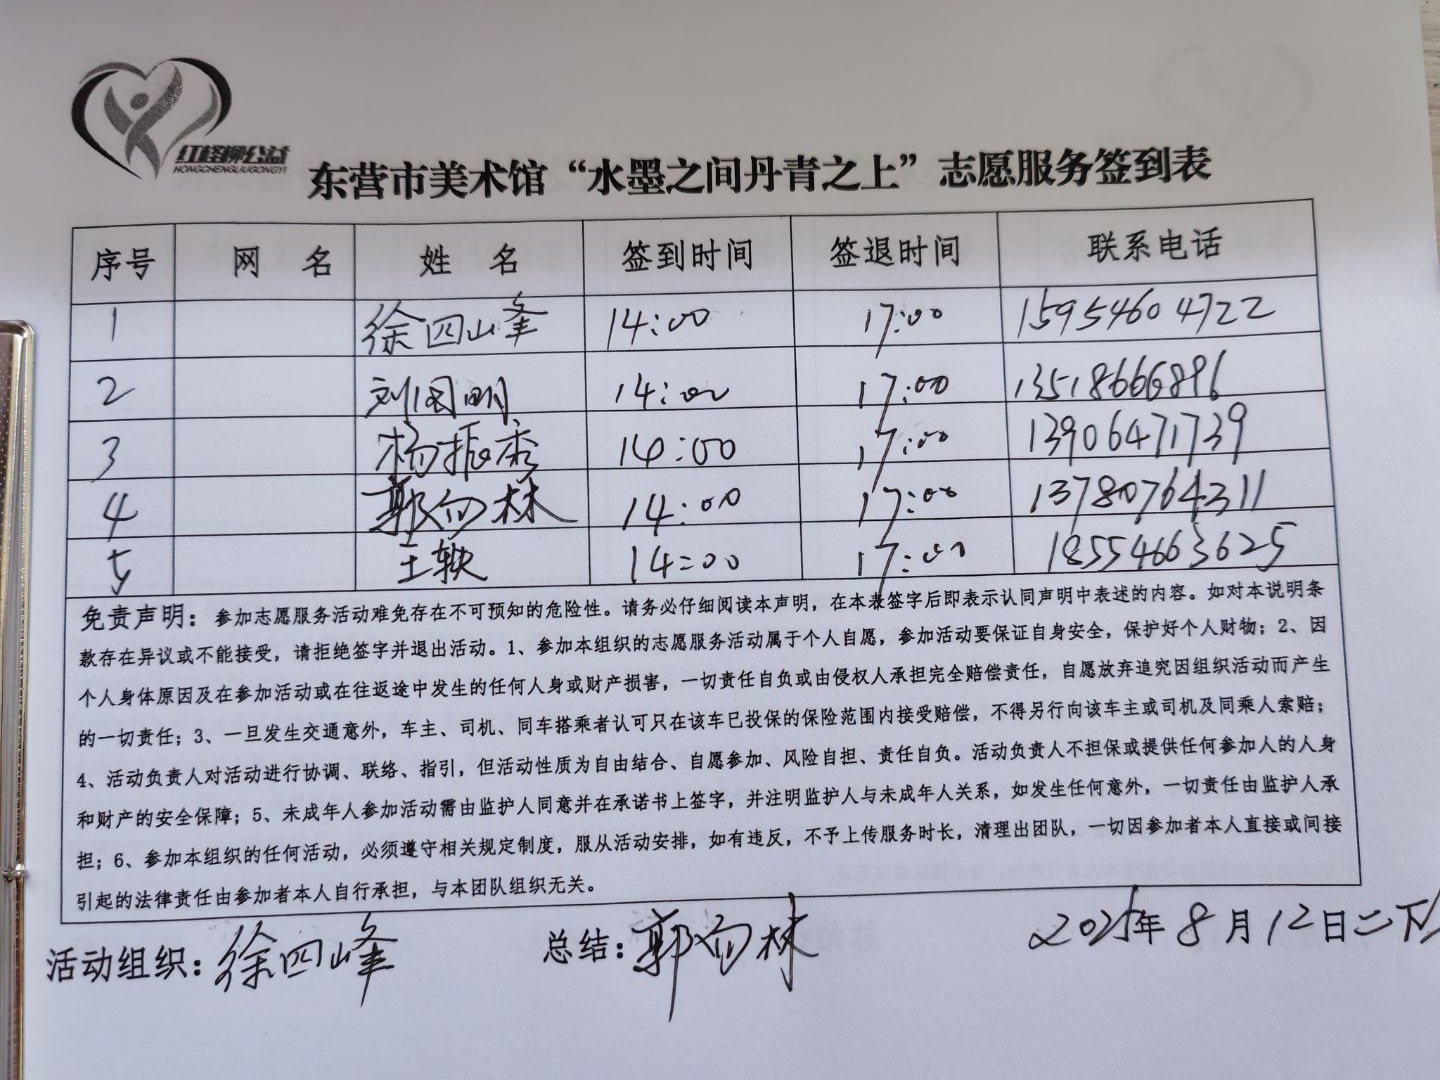 红柽柳公益
HONGCHENGLIUGONGYI
东营市美术馆“水墨之间丹青之上”志愿服务签到表
序号 网 名 姓 名 签到时间 签退时间 联系电话
1 徐四峰 14:00 17:00 15954604722
2 刘国明 14:00 17:00 13518666896
3 杨振秀 14:00 17:00 13906471739
4 郭向林 14:00 17:00 13780764311
5 王轶 14:00 17:00 18554663625
免责声明：参加志愿服务活动难免存在不可预知的危险性。请务必仔细阅读本声明，在本表签字后即表示认同声明中表述的内容。如对本说明条
款存在异议或不能接受，请拒绝签字并退出活动。1、参加本组织的志愿服务活动属于个人自愿，参加活动要保证自身安全，保护好个人财物；2、因
个人身体原因及在参加活动或在往返途中发生的任何人身或财产损害，一切责任自负或由侵权人承担完全赔偿责任，自愿放弃追究因组织活动而产生
的一切责任；3、一旦发生交通意外，车主、司机、同车搭乘者认可只在该车已投保的保险范围内接受赔偿，不得另行向该车主或司机及同乘人索赔；
4、活动负责人对活动进行协调、联络、指引，但活动性质为自由结合、自愿参加、风险自担、责任自负。活动负责人不担保或提供任何参加人的人身
和财产的安全保障；5、未成年人参加活动需由监护人同意并在承诺书上签字，并注明监护人与未成年人关系，如发生任何意外，一切责任由监护人承
担；6、参加本组织的任何活动，必须遵守相关规定制度，服从活动安排，如有违反，不予上传服务时长，清理出团队，一切因参加者本人直接或间接
引起的法律责任由参加者本人自行承担，与本团队组织无关。
活动组织：徐四峰 总结：郭向林 2025年8月12日二下